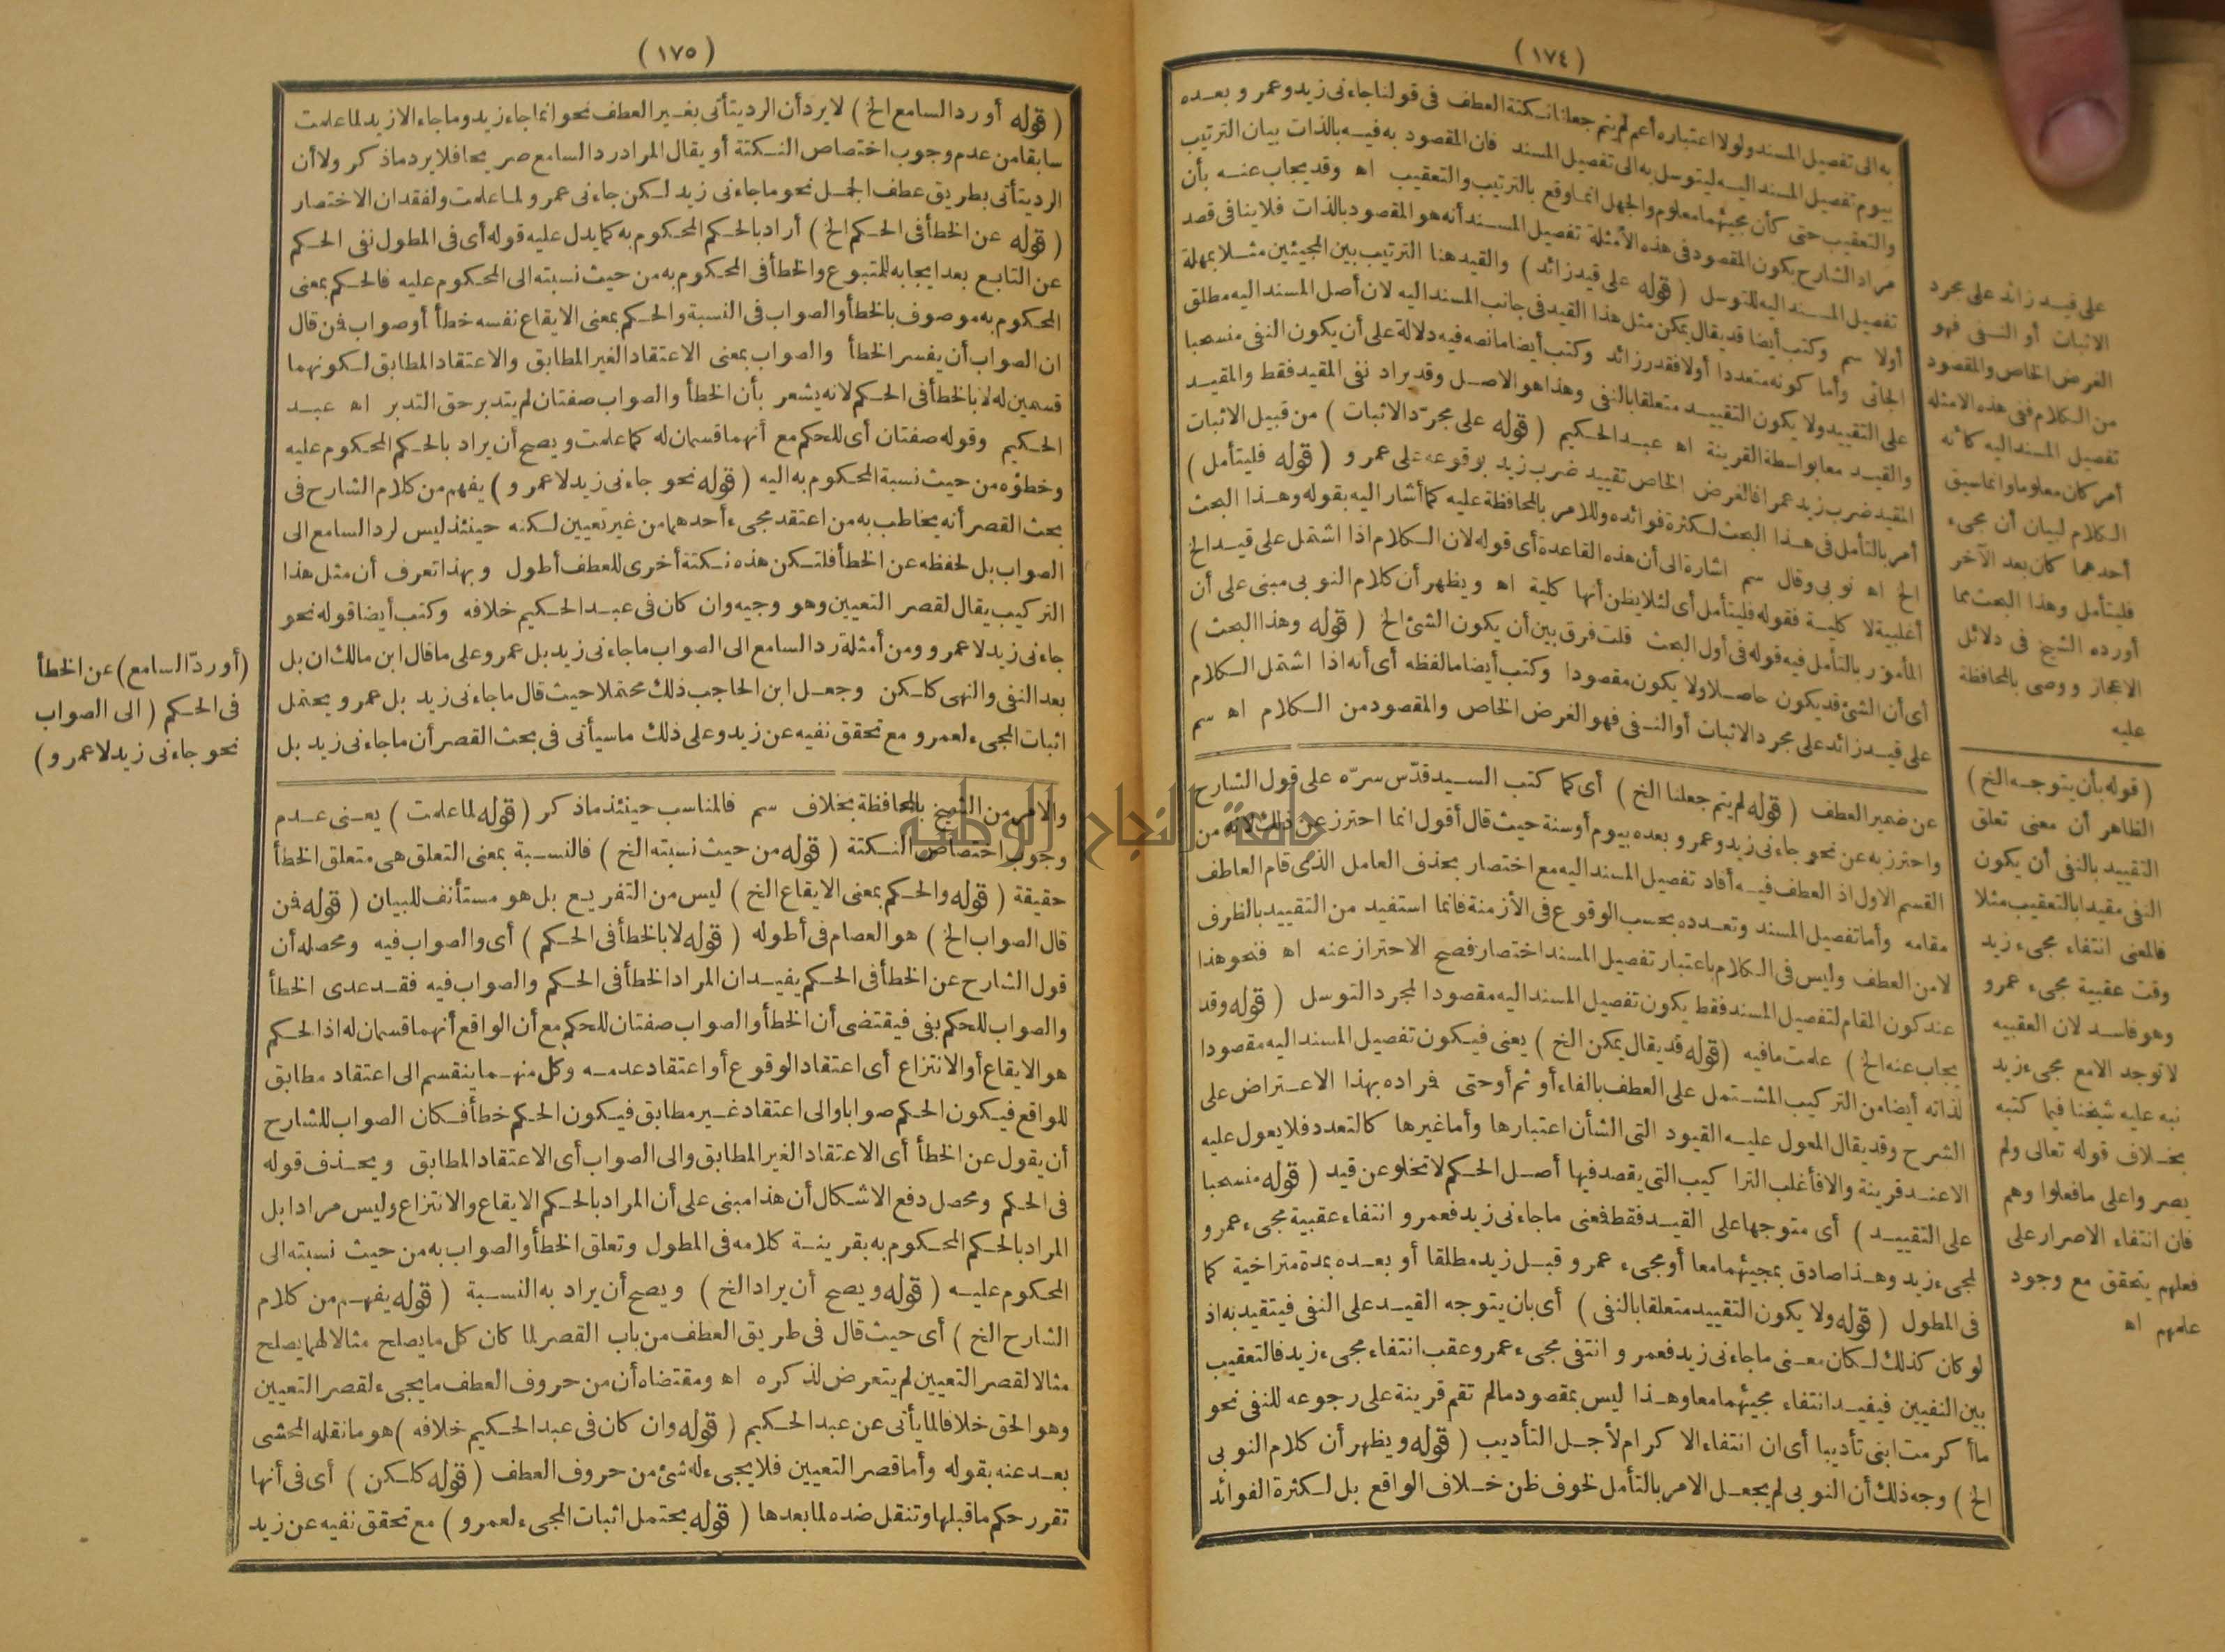 (١٧٤)
به الى تفصيل المسند ولولا اعتباره أعم لم يتم جعلنا نكتة العطف فى قولنا جاءنى زيد وعمرو بعده
بيوم تفصيل المسند اليه ليتوسل به الى تفصيل المسند فان المقصود به فيه بالذات بيان الترتيب
والتعقيب حتى كأن مجيئهما معلوم والجهل انما وقع بالترتيب والتعقيب اه وقد يجاب عنه بأن
مراد الشارح بكون المقصود فى هذه الأمثلة تفصيل المسند أنه هو المقصود بالذات فلا ينافى قصد
تفصيل المسند اليه للتوسل (قوله على قيد زائد) والقيد هنا الترتيب بين المجيئين مثلا بمهلة
أولا سم وكتب أيضا قد يقال يمكن مثل هذا القيد فى جانب المسند اليه لان أصل المسند اليه مطلق
الجائى وأما كونه متعددا أولا فقدر زائد وكتب أيضا ما نصه فيه دلالة على أن يكون النفى منسحبا
على التقييد ولا يكون التقييد متعلقا بالنفى وهذا هو الاصل وقد يراد نفى المقيد فقط والمقيد
والقيد معا بواسطة القرينة اه عبد الحكيم (قوله على مجرّد الاثبات) من قبيل الاثبات
المقيد ضرب زيد عمرا فالغرض الخاص تقييد ضرب زيد بوقوعه على عمرو (قوله فليتأمل)
أمر بالتأمل فى هذا البحث لكثرة فوائده وللامر بالمحافظة عليه كما أشار اليه بقوله وهذا البحث
الخ اه نوبى وقال سم اشارة الى أن هذه القاعدة أى قوله لان الكلام اذا اشتمل على قيد الخ
أغلبية لا كلية فقوله فليتأمل أى لئلا يظن أنها كلية اه ويظهر أن كلام النوبى مبنى على أن
المأمور بالتأمل فيه قوله فى أول البحث قلت فرق بين أن يكون الشئ الخ (قوله وهذا البحث)
أى أن الشئ قد يكون حاصلا ولا يكون مقصودا وكتب أيضا ما لفظه أى أنه اذا اشتمل الكلام
على قيد زائد على مجرد الاثبات أو النفى فهو الغرض الخاص والمقصود من الكلام اه سم
على قيد زائد على مجرد
الاثبات أو النفى فهو
الغرض الخاص والمقصود
من الكلام ففى هذه الامثلة
تفصيل المسند اليه كأنه
أمر كان معلوما وانما سيق
الكلام لبيان أن مجىء
أحدهما كان بعد الآخر
فليتأمل وهذا البحث مما
أورده الشيخ فى دلائل
الاعجاز ووصى بالمحافظة
عليه
عن ضمير العطف (قوله لم يتم جعلنا الخ) أى كما كتب السيد قدّس سرّه على قول الشارح
واحترز به عن نحو جاءنى زيد وعمرو بعده بيوم أو سنة حيث قال أقول انما احترز عن ذلك لانه من
القسم الاول اذ العطف فيه أفاد تفصيل المسند اليه مع اختصار بحذف العامل الذى قام العاطف
مقامه وأما تفصيل المسند وتعدده بحسب الوقوع فى الأزمنة فانما استفيد من التقييد بالظرف
لا من العطف وليس فى الكلام باعتبار تفصيل المسند اختصار فصح الاحتراز عنه اه فنحو هذا
عند كون المقام لتفصيل المسند فقط يكون تفصيل المسند اليه مقصودا لمجرد التوسل (قوله وقد
يجاب عنه الخ) علمت ما فيه (قوله قد يقال يمكن الخ) يعنى فيكون تفصيل المسند اليه مقصودا
لذاته أيضا من التركيب المشتمل على العطف بالفاء أو ثم أو حتى فراده بهذا الاعتراض على
الشرح وقد يقال المعول عليه القيود التى الشأن اعتبارها وأما غيرها كالتعدد فلا يعول عليه
الا عند قرينة والا فأغلب التراكيب التى يقصد فيها أصل الحكم لا تخلو عن قيد (قوله منسحبا
على التقييد) أى متوجها على القيد فقط فمعنى ما جاءنى زيد فعمرو انتفاء عقبية مجىء عمرو
لمجىء زيد وهذا صادق بمجيئهما معا أو مجىء عمرو قبل زيد مطلقا أو بعده بمدة متراخية كما
فى المطول (قوله ولا يكون التقييد متعلقا بالنفى) أى بان يتوجه القيد على النفى فيتقيد به اذ
لو كان كذلك لكان معنى ما جاءنى زيد فعمرو انتفى مجىء عمرو عقب انتفاء مجىء زيد فالتعقيب
بين النفيين فيفيد انتفاء مجيئهما معا وهذا ليس بمقصود ما لم تقم قرينة على رجوعه للنفى نحو
ما أكرمت ابنى تأديبا أى ان انتفاء الاكرام لأجل التأديب (قوله ويظهر أن كلام النوبى
الخ) وجه ذلك أن النوبى لم يجعل الامر بالتأمل لخوف ظن خلاف الواقع بل لكثرة الفوائد
(قوله بأن يتوجه الخ)
الظاهر أن معنى تعلق
التقييد بالنفى أن يكون
النفى مقيدا بالتعقيب مثلا
فالمعنى انتفاء مجىء زيد
وقت عقبية مجىء عمرو
وهو فاسد لان العقبيه
لا توجد الا مع مجىء زيد
نبه عليه شيخنا فيما كتبه
بخلاف قوله تعالى ولم
يصروا على ما فعلوا وهم
فان انتفاء الاصرار على
فعلهم يتحقق مع وجود
علمهم اه
(١٧٥)
(قوله أو رد السامع الخ) لا يرد أن الرد يتأتى بغير العطف نحو انما جاء زيد وما جاء الا زيد لما علمت
سابقا من عدم وجوب اختصاص النكتة أو يقال المراد رد السامع صريحا فلا يرد ما ذكر ولا أن
الرد يتأتى بطريق عطف الجمل نحو ما جاءنى زيد لكن جاءنى عمرو لما علمت ولفقدان الاختصار
(قوله عن الخطأ فى الحكم الخ) أراد بالحكم المحكوم به كما يدل عليه قوله أى فى المطول نفى الحكم
عن التابع بعد ايجابه للمتبوع والخطأ فى المحكوم به من حيث نسبته الى المحكوم عليه فالحكم بمعنى
المحكوم به موصوف بالخطأ والصواب فى النسبة والحكم بمعنى الايقاع نفسه خطأ أو صواب فمن قال
ان الصواب أن يفسر الخطأ والصواب بمعنى الاعتقاد الغير المطابق والاعتقاد المطابق لكونهما
قسمين له لا بالخطأ فى الحكم لانه يشعر بأن الخطأ والصواب صفتان لم يتدبر حق التدبر اه عبد
الحكيم وقوله صفتان أى للحكم مع أنهما قسمان له كما علمت ويصح أن يراد بالحكم المحكوم عليه
وخطؤه من حيث نسبة المحكوم به اليه (قوله نحو جاءنى زيد لا عمرو) يفهم من كلام الشارح فى
بحث القصر أنه يخاطب به من اعتقد مجىء أحدهما من غير تعيين لكنه حينئذ ليس لرد السامع الى
الصواب بل لحفظه عن الخطأ فلتكن هذه نكتة أخرى للعطف أطول وبهذا تعرف أن مثل هذا
التركيب يقال لقصر التعيين وهو وجيه وان كان فى عبد الحكيم خلافه وكتب أيضا قوله نحو
جاءنى زيد لا عمرو ومن أمثلة رد السامع الى الصواب ما جاءنى زيد بل عمرو على ما قال ابن مالك ان بل
بعد النفى والنهى كلكن وجعل ابن الحاجب ذلك محتملا حيث قال ما جاءنى زيد بل عمرو يحتمل
اثبات المجىء لعمرو مع تحقق نفيه عن زيد وعلى ذلك ما سيأتى فى بحث القصر أن ما جاءنى زيد بل
(أو ردّ السامع) عن الخطأ
فى الحكم (الى الصواب
نحو جاءنى زيد لا عمرو)
والامر من الشيخ بالمحافظة بخلاف سم فالمناسب حينئذ ما ذكر (قوله لما علمت) يعنى عدم
وجوب اختصاص النكتة (قوله من حيث نسبته الخ) فالنسبة بمعنى التعلق هى متعلق الخطأ
حقيقة (قوله والحكم بمعنى الايقاع الخ) ليس من التفريع بل هو مستأنف للبيان (قوله فمن
قال الصواب الخ) هو العصام فى أطوله (قوله لا بالخطأ فى الحكم) أى والصواب فيه ومحصله أن
قول الشارح عن الخطأ فى الحكم يفيد ان المراد الخطأ فى الحكم والصواب فيه فقد عدى الخطأ
والصواب للحكم بفى فيقتضى أن الخطأ والصواب صفتان للحكم مع أن الواقع أنهما قسمان له اذا الحكم
هو الايقاع أو الانتزاع أى اعتقاد الوقوع أو اعتقاد عدمه وكل منهما ينقسم الى اعتقاد مطابق
للواقع فيكون الحكم صوابا والى اعتقاد غير مطابق فيكون الحكم خطأ فكان الصواب للشارح
أن يقول عن الخطأ أى الاعتقاد الغير المطابق والى الصواب أى الاعتقاد المطابق ويحذف قوله
فى الحكم ومحصل دفع الاشكال أن هذا مبنى على أن المراد بالحكم الايقاع والانتزاع وليس مرادا بل
المراد بالحكم المحكوم به بقرينة كلامه فى المطول وتعلق الخطأ والصواب به من حيث نسبته الى
المحكوم عليه (قوله ويصح أن يراد الخ) ويصح أن يراد به النسبة (قوله يفهم من كلام
الشارح الخ) أى حيث قال فى طريق العطف من باب القصر لما كان كل ما يصلح مثالا لهما يصلح
مثالا لقصر التعيين لم يتعرض لذكره اه ومقتضاه أن من حروف العطف ما يجىء لقصر التعيين
وهو الحق خلافا لما يأتى عن عبد الحكيم (قوله وان كان فى عبد الحكيم خلافه) هو ما نقله المحشى
بعد عنه بقوله وأما قصر التعيين فلا يجىء له شئ من حروف العطف (قوله كلكن) أى فى أنها
تقرر حكم ما قبلها وتنقل ضده لما بعدها (قوله يحتمل اثبات المجىء لعمرو) مع تحقق نفيه عن زيد
جامعة النجاح الوطنية